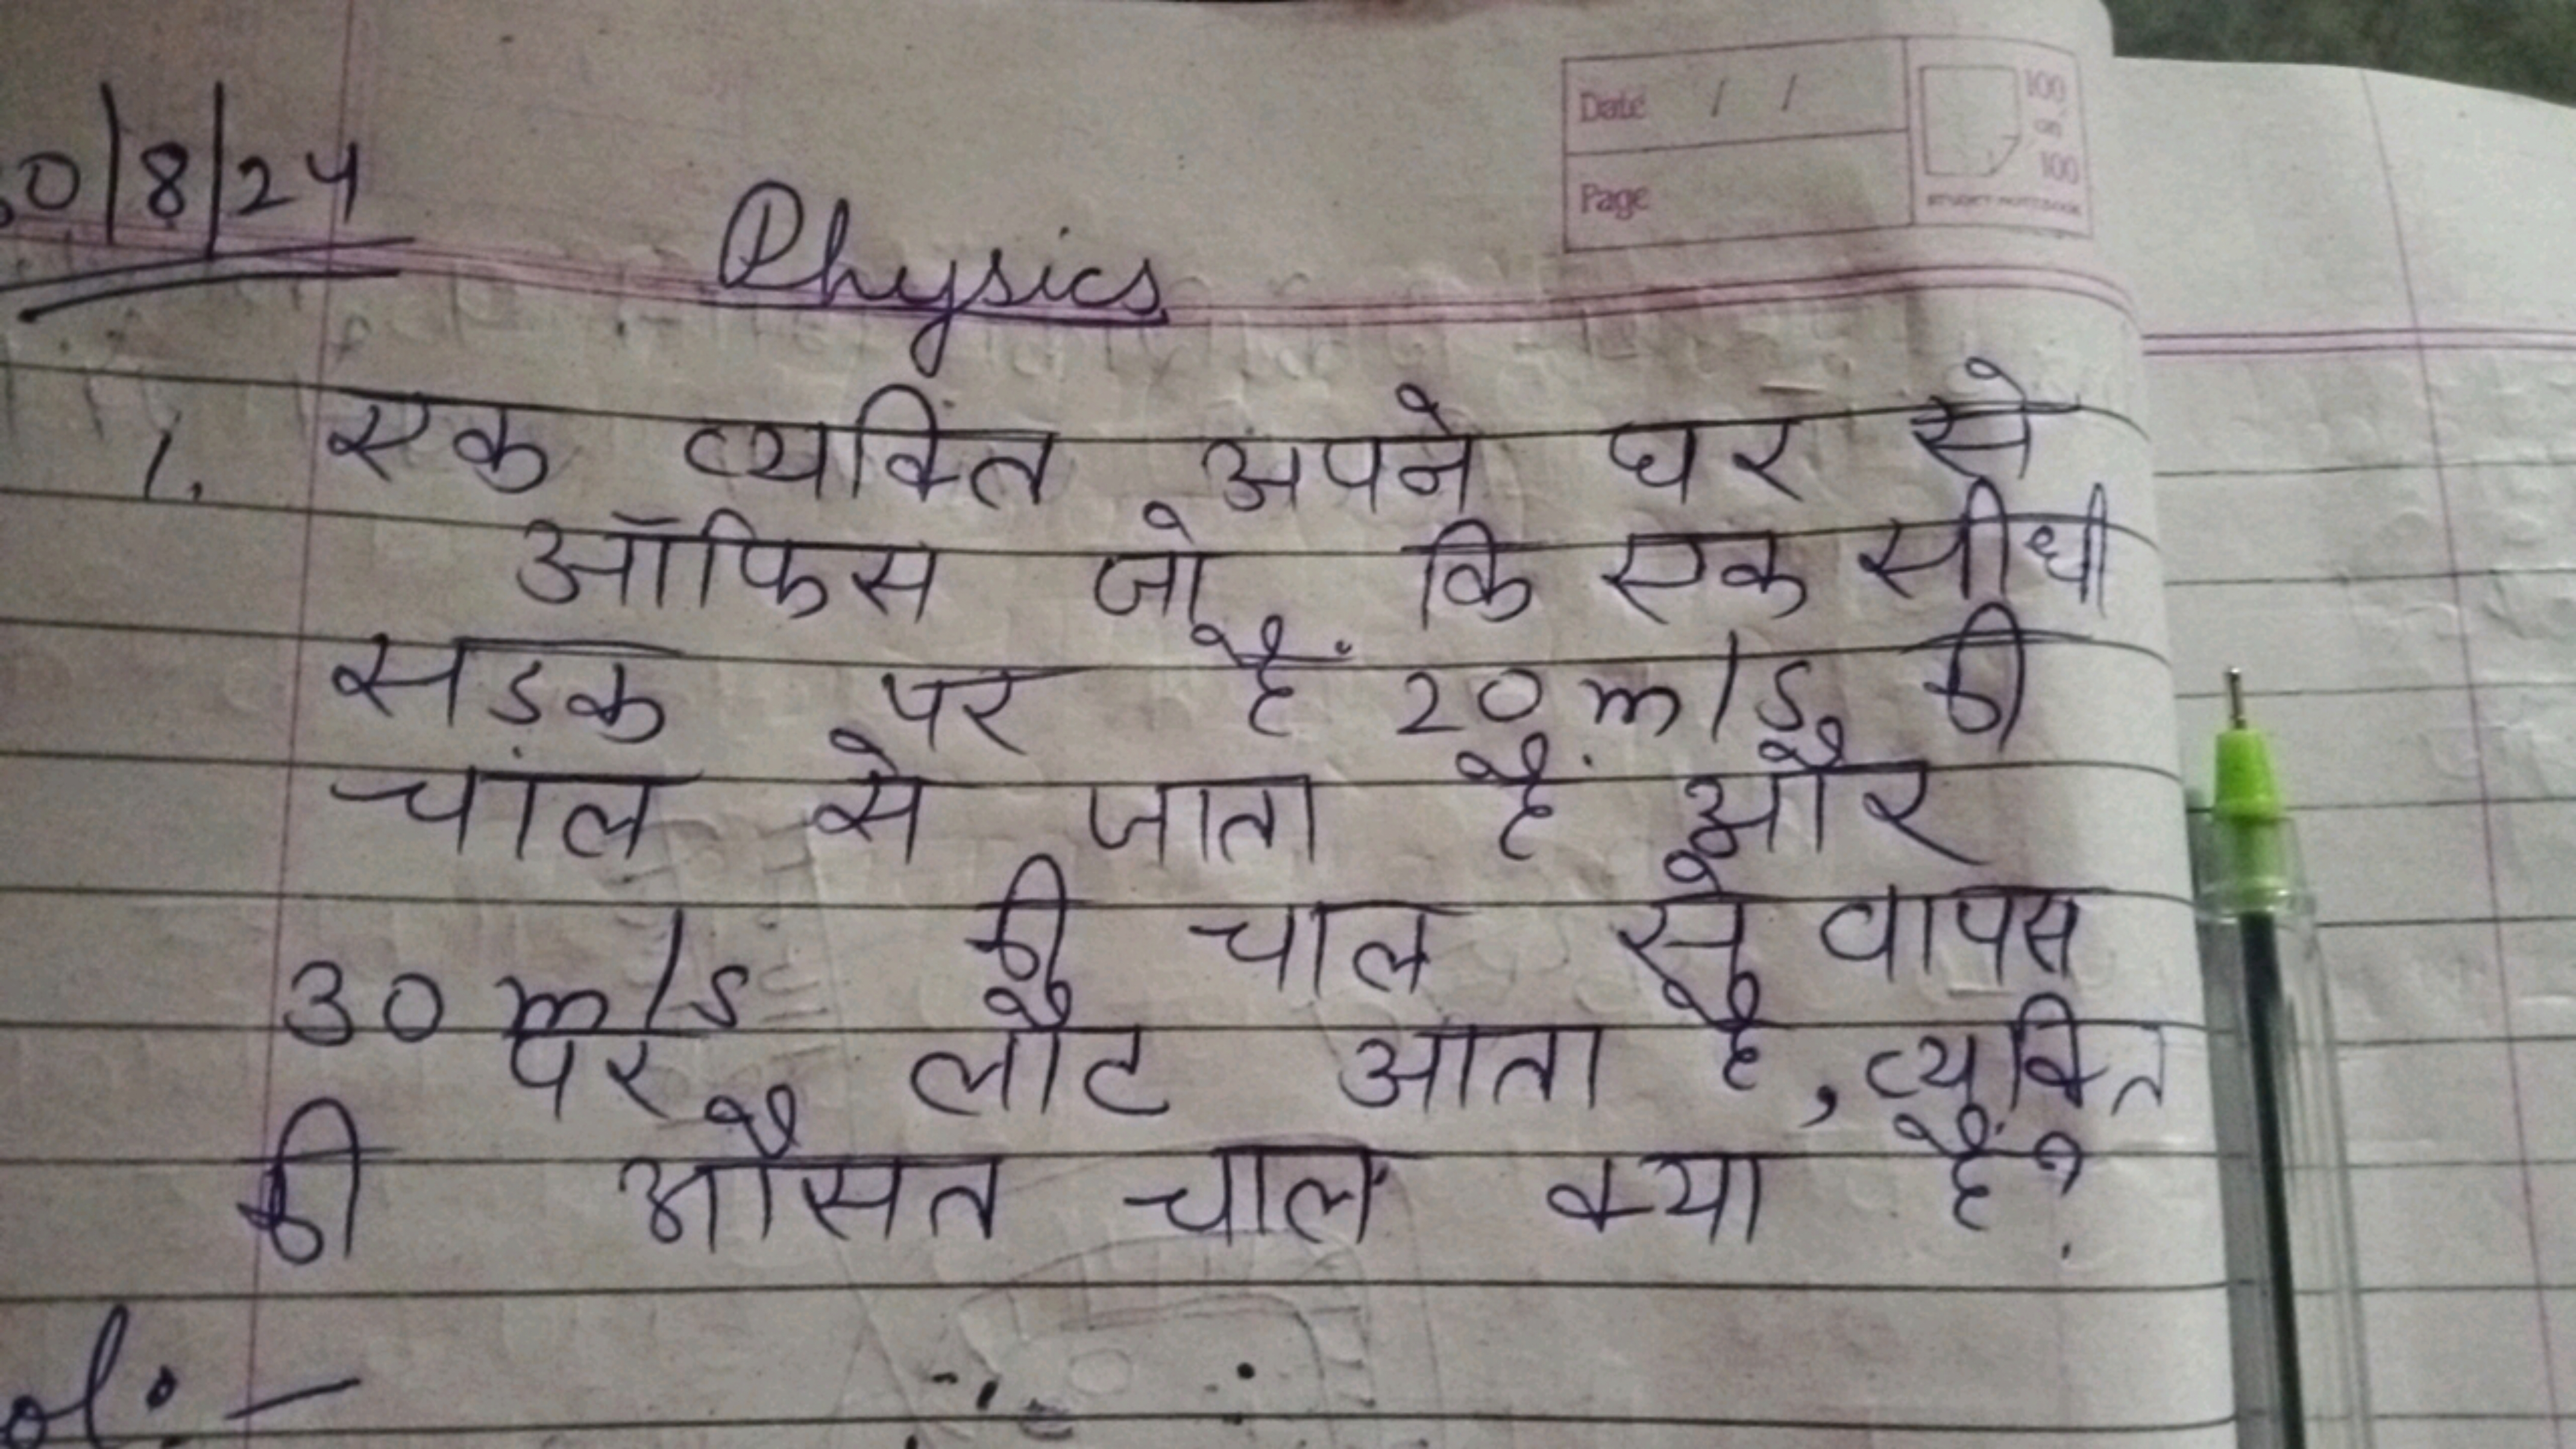 0/8/24
Date / /
100
on
100
Page
Physics
1. एक व्यक्ति अपने घर से
ऑफिस जो कि एक सीधी
सड़क पर है 20 m/s की
चाल से जाता है और
30 m/s की चाल से वापस
पर लौट आता है, व्यक्ति
की औसत चाल क्या है?
ol: –